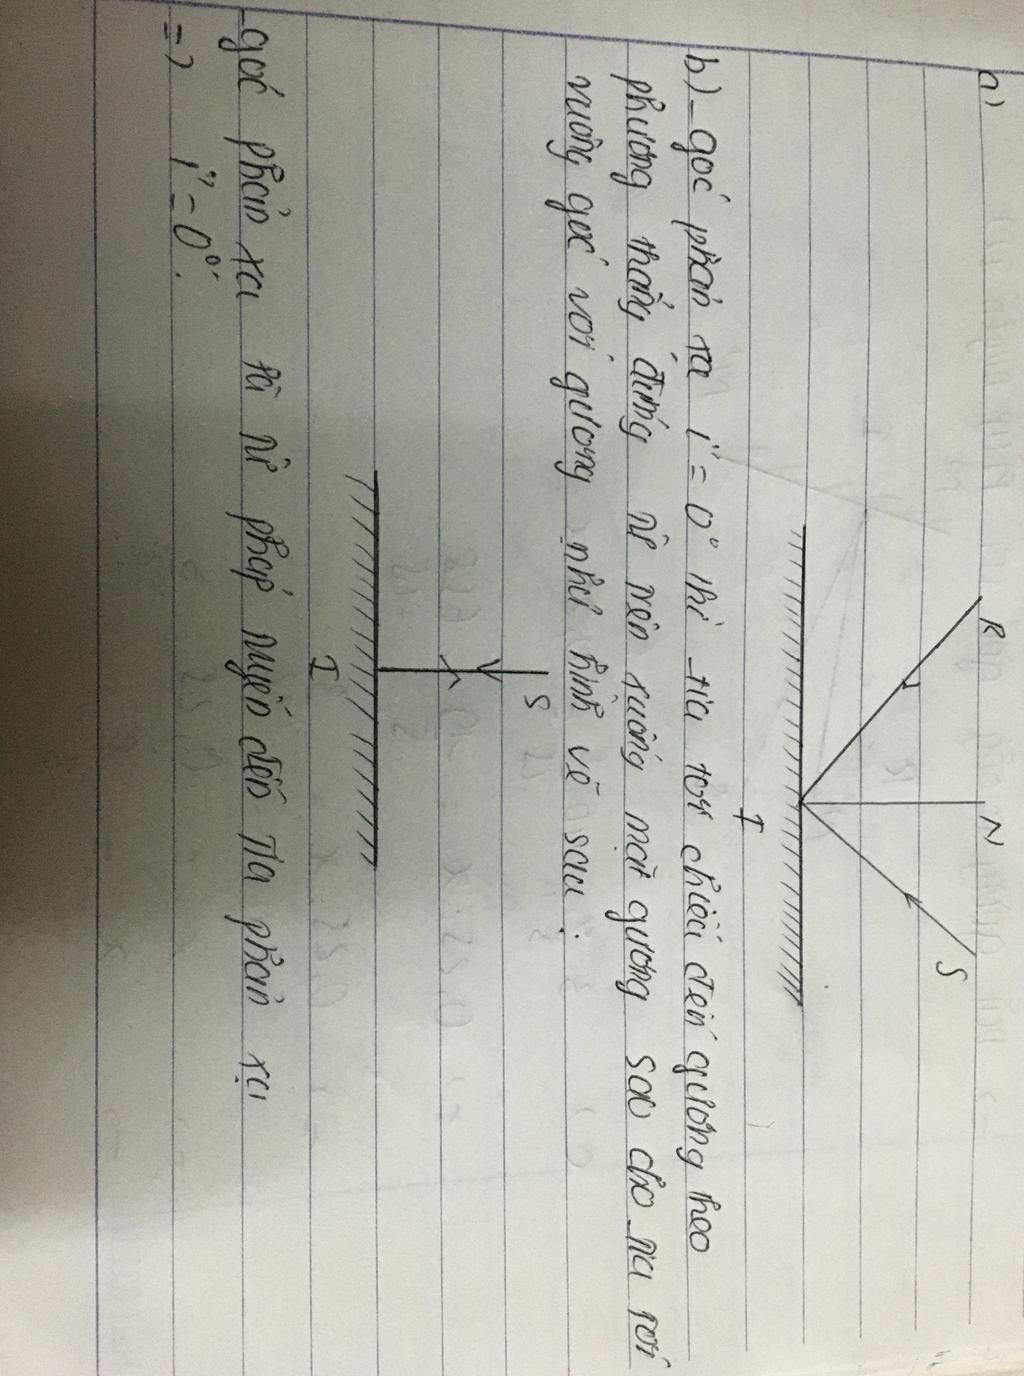 a)
R N S
I
b) - góc phản xạ i' = 0° thì tia tới chiếu đến gương theo
phương thẳng đứng từ trên xuống mặt gương sao cho tia tới
vuông góc với gương như hình vẽ sau:
S
I
- góc phản xạ từ pháp tuyến đến tia phản xạ
=> i' = 0°.